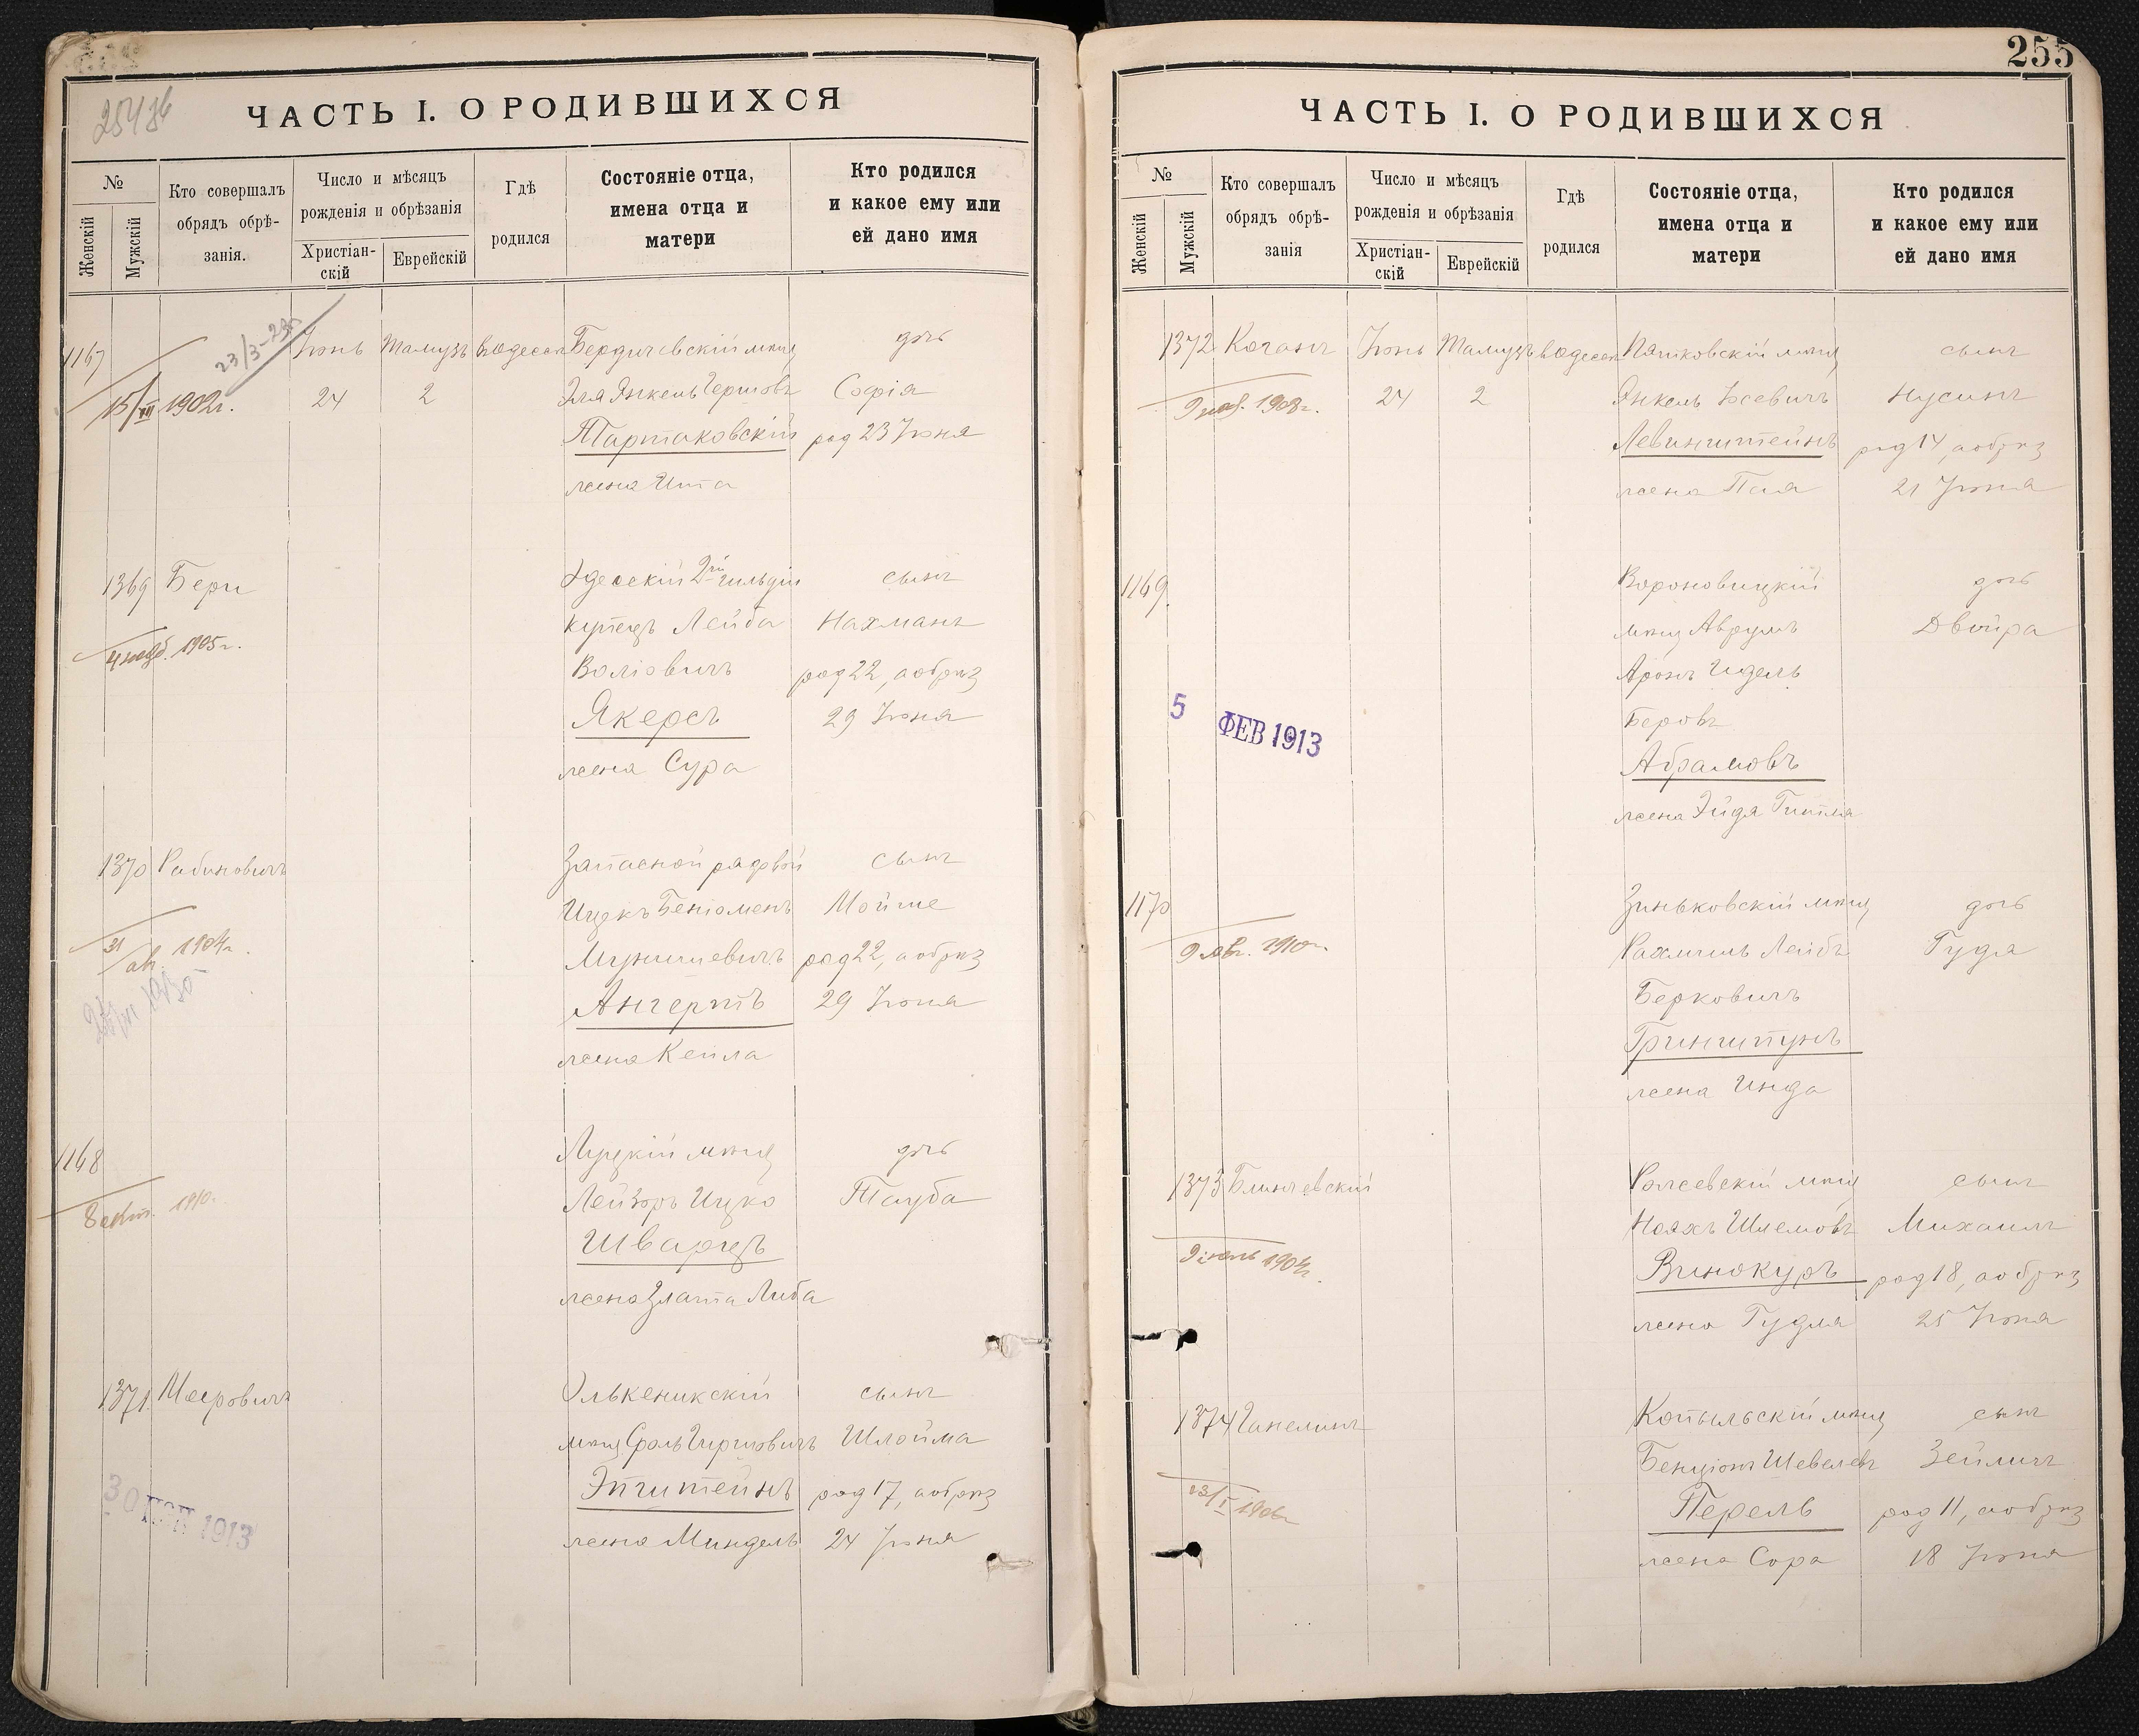 ЧАСТЬ I. О РОДИВШИХСЯ
№
Женскій
Мужскій
Кто совершалъ
обрядъ обрѣ-
занія.
Число и мѣсяцъ
рожденія и обрѣзанія
Христіан-
скій
Еврейскій
Гдѣ
родился
Состояніе отца,
имена отца и
матери
Кто родился
и какое ему или
ей дано имя
23/3-23
1167 Іюнь Тамузъ въ Одессѣ Бердичевскій мѣщ дочь
15/VII 1902г. 24 2 Эля Янкель Гершовъ Софія
Тартаковскій род 23 Іюня
жена Ита
1369 Бери Одесскій 2й гильдіи сынъ
купецъ Лейба Нахманъ
4 нояб. 1905г.
Воліовичъ род 22, а обрѣз
Якерсъ 29 Іюня
жена Сура
1370 Рабиновичъ Запасной рядовой сынъ
Ицекъ Беніоменъ Мойше
31/ав. 1904г.
род 22, а обрѣз
Ангертъ 29 Іюня
жена Кейла
1168 Луцкій мѣщ дочь
8 окт. 1910г. Лейзоръ Ицко Тауба
Шварцъ
жена Злата Либа
1371 Мееровичъ Олькеникскій сынъ
мѣщ Сроль Гиршовичъ Шлойма
Эпштейнъ род 17, а обрѣз
30 1913
жена Миндель 24 Іюня
255
ЧАСТЬ I. О РОДИВШИХСЯ
№
Женскій
Мужскій
Кто совершалъ
обрядъ обрѣ-
занія
Число и мѣсяцъ
рожденія и обрѣзанія
Христіан-
скій
Еврейскій
Гдѣ
родился
Состояніе отца,
имена отца и
матери
Кто родился
и какое ему или
ей дано имя
1372 Коганъ Іюнь Тамузъ въ Одессѣ мѣщ сынъ
1908г. 24 2 Янкель Іосевичъ Нусинъ
Левинштейнъ род 14, а обрѣз
жена Пая 21 Іюня
1169 Вороновицкій дочь
мѣщ Аврумъ Двойра
Аронъ Идель
5 ФЕВ 1913
Беровъ
Абрамовъ
жена Эйдя Гитля
1170 Зиньковскій мѣщ дочь
9 авг. 1910г. Рахмиль Лейбъ Гудя
Берковичъ
Гринштунъ
жена Инда
1373 Блинчевскій мѣщ сынъ
Ноахъ Шлемовъ Михаилъ
9 іюль 1904г.
Винокуръ род 18, а обрѣз
жена Гудля 25 Іюня
1374 Ганелинъ Копыльскій мѣщ сынъ
Бенціонъ Шевелевъ Зейликъ
13/I 1906г Перель род 11, а обрѣз
жена Сора 18 Іюня